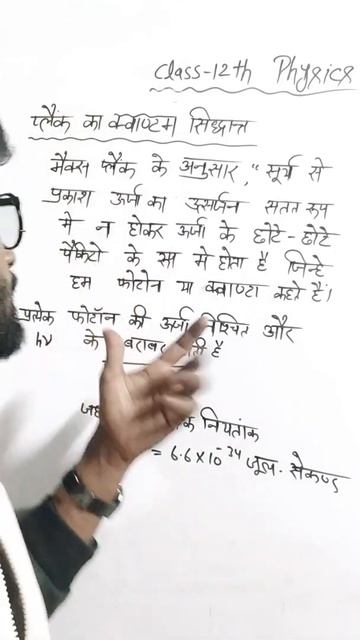 Class-12th Physics
प्लैंक का क्वाण्टम सिद्धान्त
मैक्स प्लैंक के अनुसार, "सूर्य से
प्रकाश ऊर्जा का उत्सर्जन सतत रूप
मे न होकर ऊर्जा के छोटे-छोटे
पैकेटो के रूप मे होता है जिन्हे
हम फोटोन या क्वाण्टा कहते हैं।
प्रत्येक फोटॉन की ऊर्जा निश्चित और
hν के बराबर है
नियतांक
= 6.6×10⁻³⁴ जूल. सेकण्ड